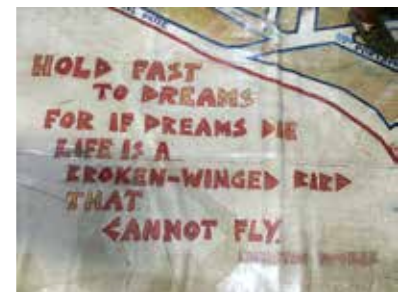 HOLD FAST
TO DREAMS
FOR IF DREAMS DIE
LIFE IS A
BROKEN-WINGED BIRD
THAT
CANNOT FLY.